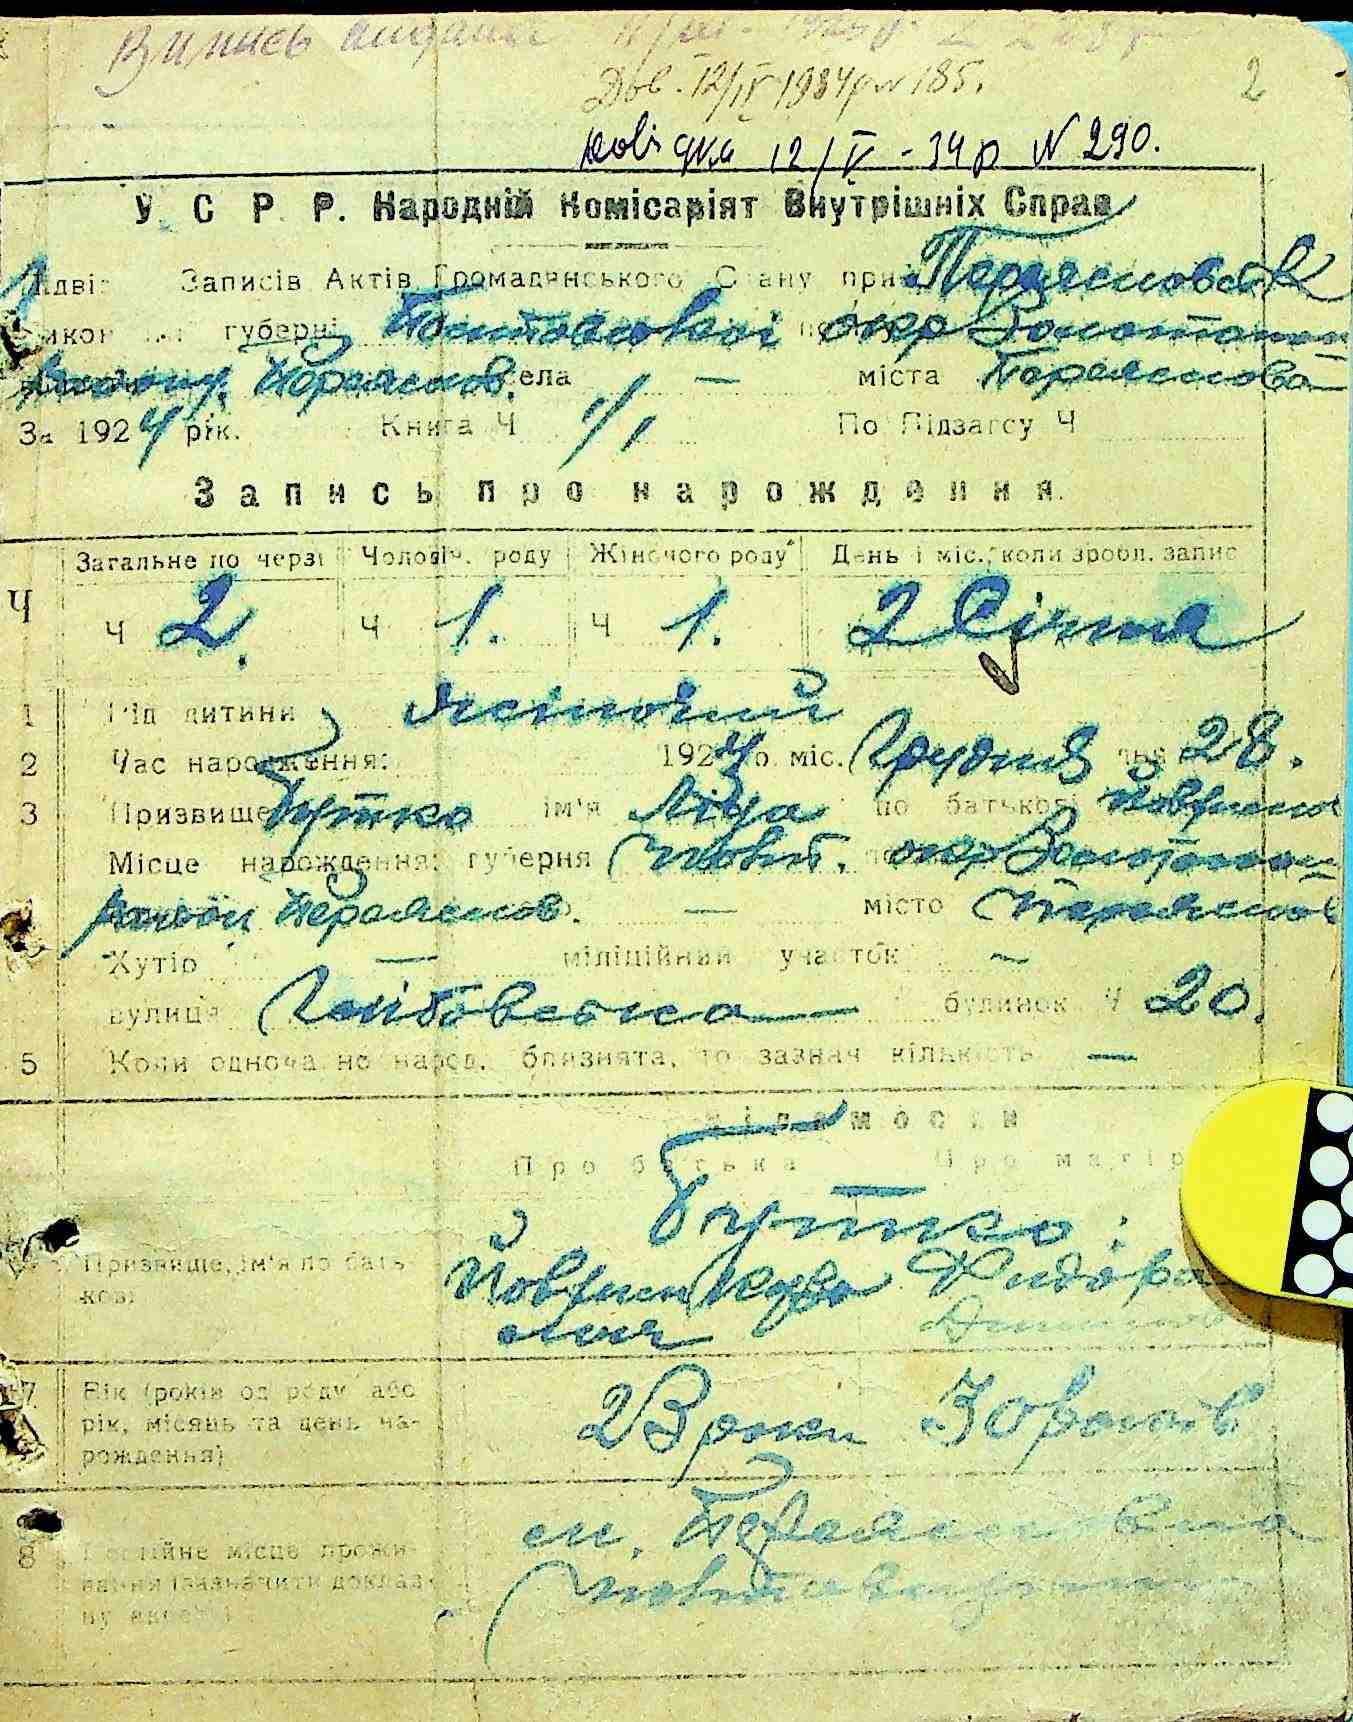 Вишись видана
Дов. 12/IV 1934 р № 185.
2
Довідка 12/V - 34 р N 290.
У. С. Р. Р. Народній Комісаріят Внутрішніх Справ
Підвід Записів Актів Громадянського Стану при Переяславськ
викон губерні Полтавської окр Золотонош
Району Переяслов. села — міста Переяслова
За 1924 рік. Книга Ч 1/1 По Підзагсу Ч
Запись про нарождення.
Загальне по черзі Чоловіч. роду Жіночого роду День і міс., коли зробл. запис
Ч Ч 2. Ч 1. Ч 1. 2 Січня
1 Рід дитини Жіночий
2 Час народження: 1924 р. міс. Грудня дня 28.
3 Призвище Бутко ім'я Ліда по батькові
Місце нарождення: губерня Полт. окр Золотонош
район Переяслов. — місто Переяслов
Хутір — міліційний участок —
вулиця будинок Ч 20.
5 Коли одночасно народ. близнята, то зазнач кількість —
Відомости
Про батька Про матір
Бутко
Призвище, ім'я по батькові Федора
7 Вік (років од роду або рік, місяць та день нарождення) 23 роки 30 років
8 Постійне місце проживання (зазначити докладну адресу) м. Переяслов на